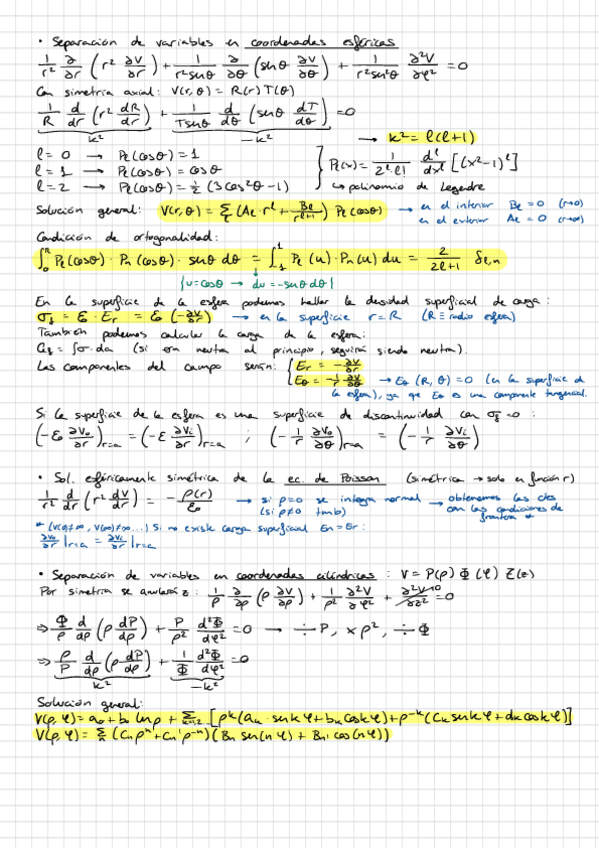 • Separación de variables en coordenadas esféricas
1/r² ∂/∂r (r² ∂V/∂r) + 1/(r² senθ) ∂/∂θ (senθ ∂V/∂θ) + 1/(r² sen²θ) ∂²V/∂φ² = 0
Con simetría axial: V(r,θ) = R(r) T(θ)
1/R d/dr (r² dR/dr) + 1/(T senθ) d/dθ (senθ dT/dθ) = 0
k² −k² → k² = l(l+1)
l = 0 → Pl(cosθ) = 1
l = 1 → Pl(cosθ) = cosθ
l = 2 → Pl(cosθ) = ½ (3cos²θ − 1)
} Pl(x) = 1/(2^l l!) d^l/dx^l [(x²−1)^l]
↳ polinomio de Legendre
Solución general: V(r,θ) = Σ_l (Al · r^l + Bl/r^(l+1)) Pl(cosθ) → en el interior Bl = 0 (r→0)
en el exterior Al = 0 (r→∞)
Condición de ortogonalidad:
∫₀^R Pl(cosθ) · Pn(cosθ) · senθ dθ = ∫₋₁¹ Pl(u) · Pn(u) du = 2/(2l+1) δl,n
{u = cosθ → du = −senθ dθ}
En la superficie de la esfera podemos hallar la densidad superficial de carga:
σf = ε₀ · Er = ε₀ (−∂V/∂r) → en la superficie r = R (R ≡ radio esfera)
También podemos calcular la carga de la esfera:
Qf = ∫σ·da (si era neutra al principio, seguirá siendo neutra).
Las componentes del campo serán: { Er = −∂V/∂r
Eθ = −1/r ∂V/∂θ → Eθ (R,θ) = 0 (en la superficie de
la esfera), ya que Eθ es una componente tangencial.
Si la superficie de la esfera es una superficie de discontinuidad con σf = 0 :
(−ε₀ ∂Vo/∂r)r=a = (−ε ∂Vi/∂r)r=a ; (−1/r ∂Vo/∂θ)r=a = (−1/r ∂Vi/∂θ)
• Sol. esféricamente simétrica de la ec. de Poisson (simétrica → solo en función r)
1/r² d/dr (r² dV/dr) = − ρ(r)/ε₀ → si ρ=0 se integra normal → obtenemos las ctes
(si ρ≠0 tamb) con las condiciones de
frontera *
* (V(0)≠∞, V(∞)≠∞...) Si no existe carga superficial En = Er:
∂Vo/∂r |r=a = ∂Vi/∂r |r=a
• Separación de variables en coordenadas cilíndricas : V = P(ρ) Φ(φ) Z(z)
Por simetría se anulará z : 1/ρ ∂/∂ρ (ρ ∂V/∂ρ) + 1/ρ² ∂²V/∂φ² + ∂²V/∂z² 0 = 0
⇒ Φ/ρ d/dρ (ρ dP/dρ) + P/ρ² d²Φ/dφ² = 0 → ÷ P, × ρ², ÷ Φ
⇒ ρ/P d/dρ (ρ dP/dρ) + 1/Φ d²Φ/dφ² = 0
k² −k²
Solución general:
V(ρ,φ) = a₀ + b₀ lnρ + Σ [ρ^k (ak · senkφ + bk coskφ) + ρ^−k (Ck senkφ + dk coskφ)]
V(ρ,φ) = Σ_n (Cn ρ^n + Cn' ρ^−n) (Bn sen(nφ) + Bn' cos(nφ))